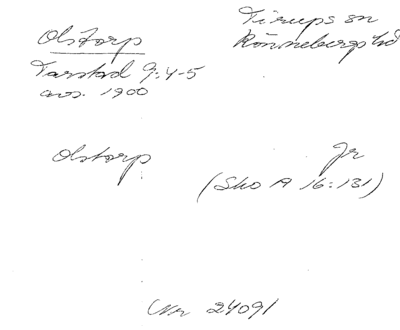 Olstorp
Tarstad 9:4-5
avs. 1900
Tirups sn
Rönnebergs hd
Olstorp
Jr
(Sko A 16:131)
Nr 24091